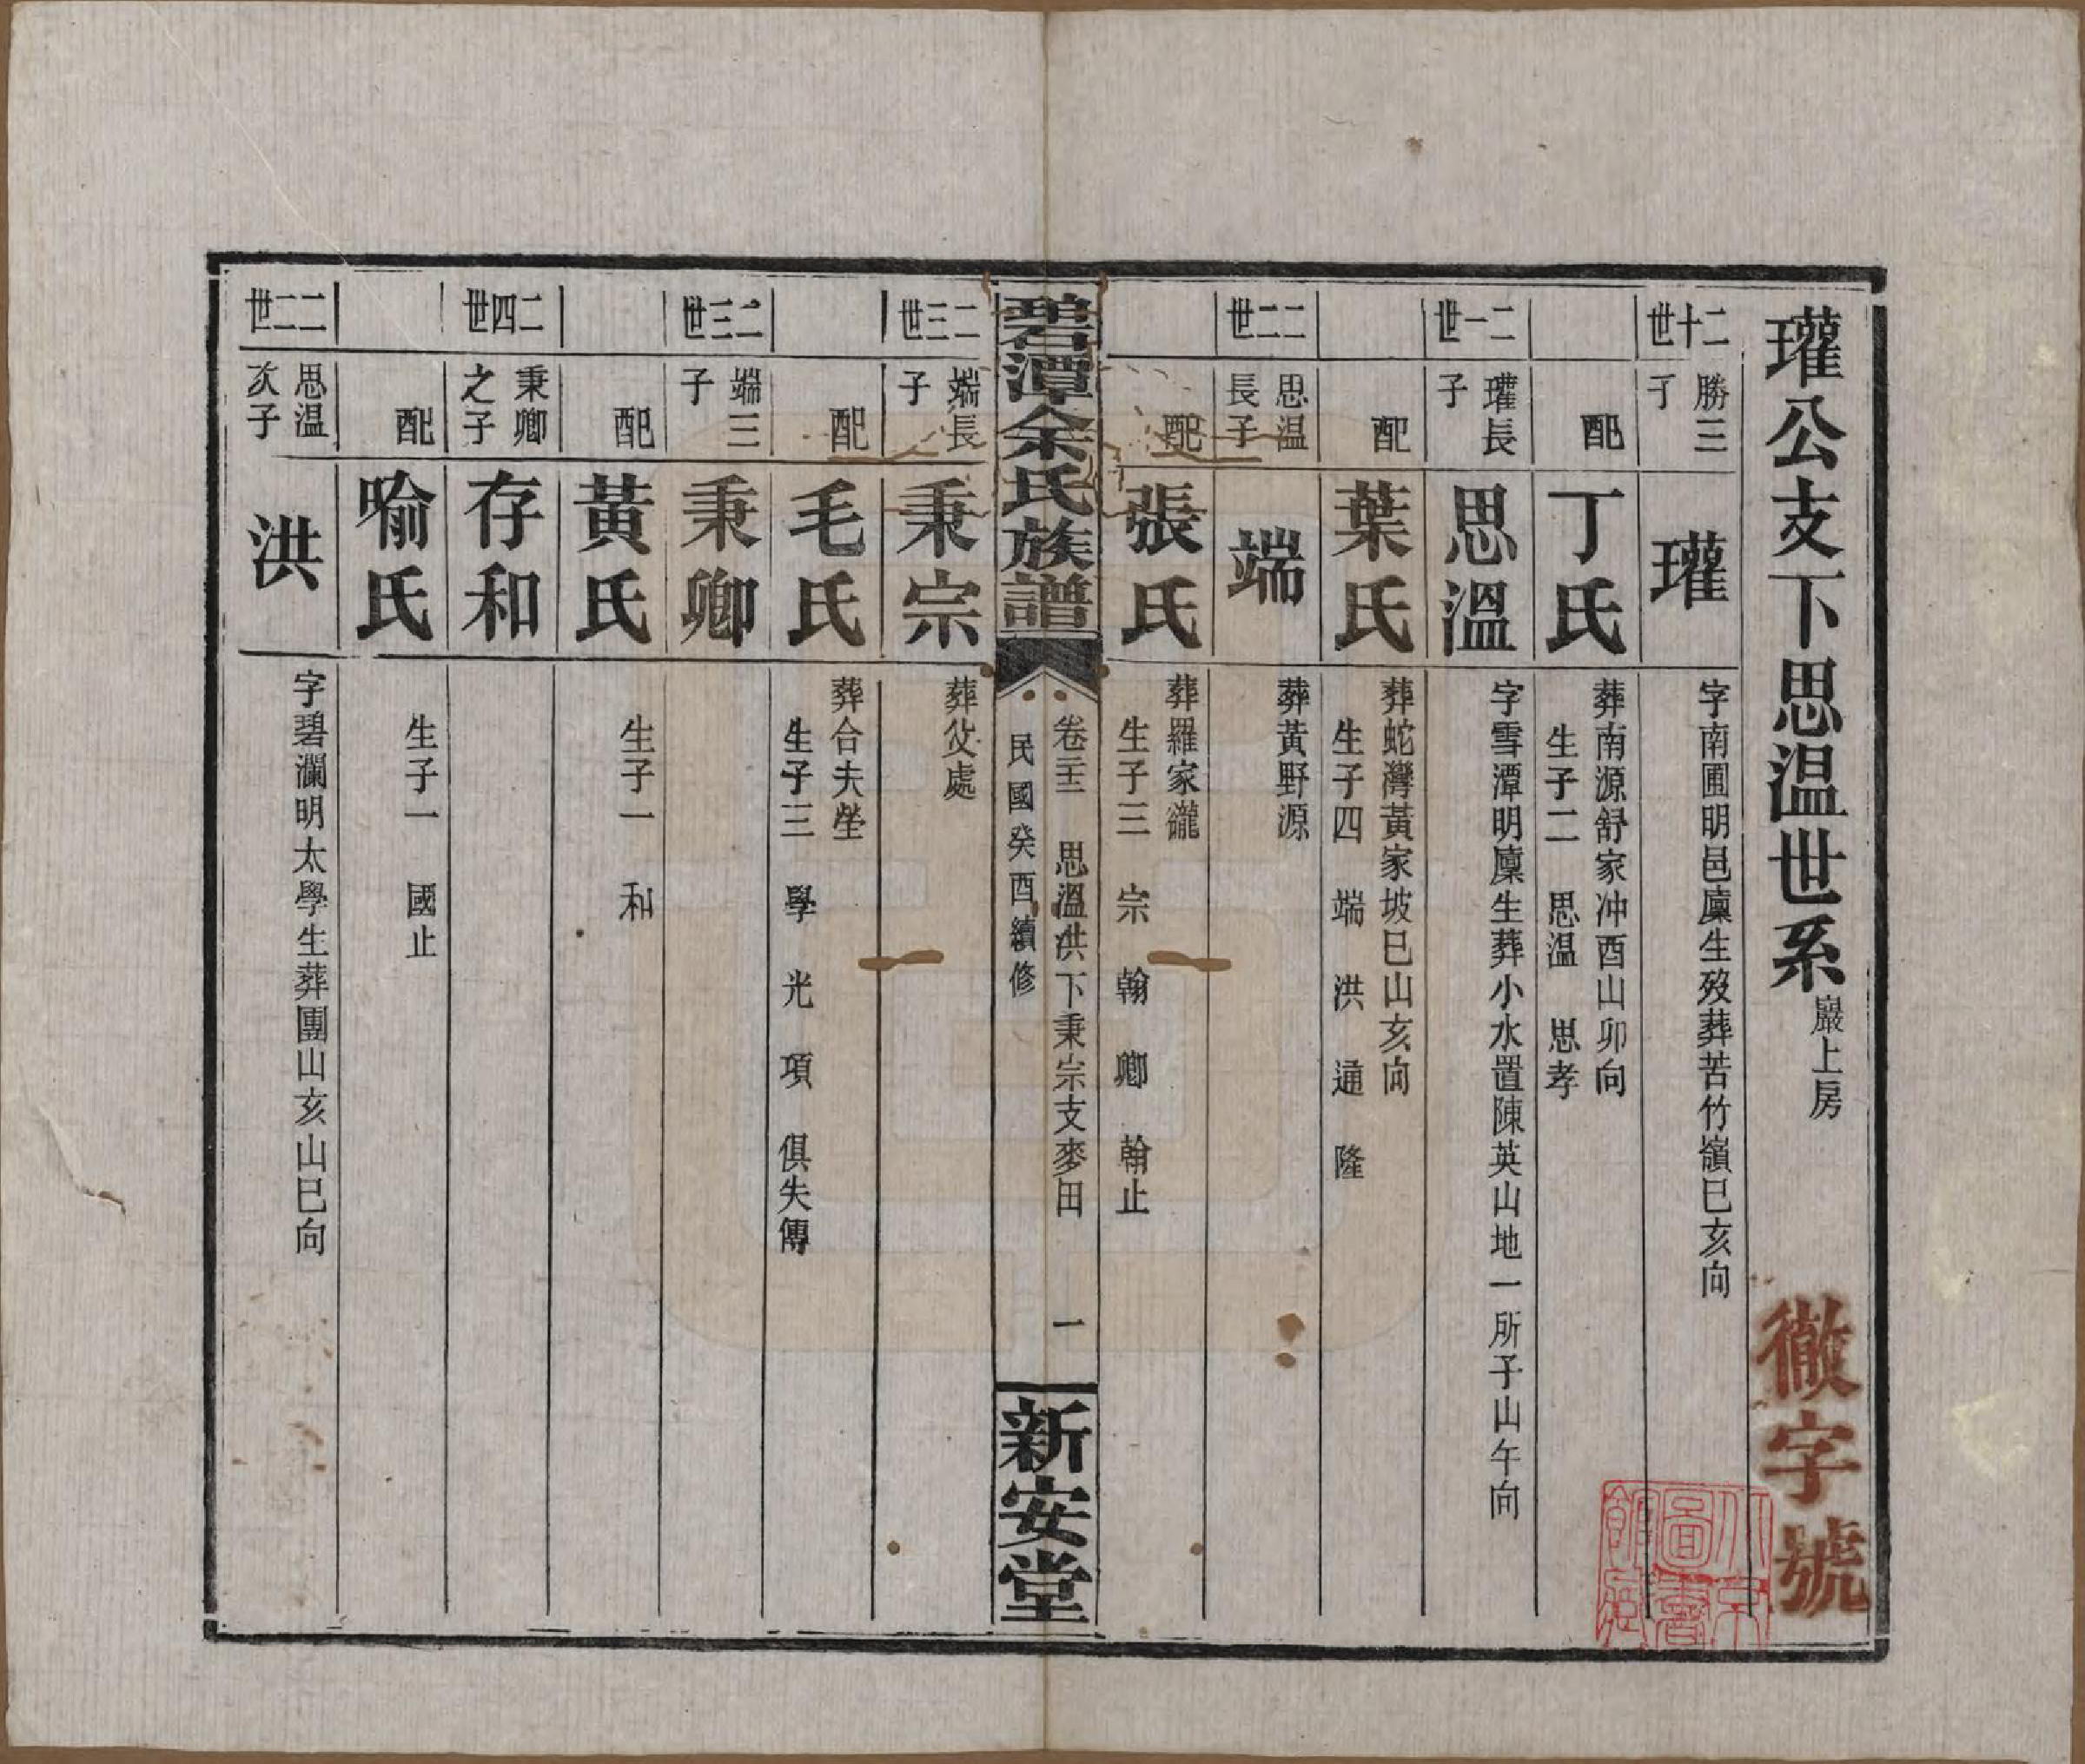 瓘公支下思温世系巖上房
徽字號
北京圖書館藏
二十世
勝三子
瓘
字南圃明邑廩生歿葬苦竹嶺巳亥向
配
丁氏
葬南源舒家冲酉山卯向
生子二 思温 思孝
二一世
瓘長子
思溫
字雪潭明廩生葬小水置陳英山地一所子山午向
配
葉氏
葬蛇灣黃家坡巳山亥向
生子四 端 洪 通 隆
二二世
思温長子
端
葬黃野源
配
張氏
葬羅家巃
生子三 宗 翰 卿 翰止
碧潭余氏族譜
卷三 思溫洪下秉宗支麥田 一
民國癸酉續修
新安堂
二三世
端長子
秉宗
葬父處
配
毛氏
葬合夫塋
生子三 學 光 項 俱失傳
二三世
端三子
秉卿
配
黃氏
生子一 和
二四世
秉卿之子
存和
配
喻氏
生子一 國止
二二世
思温次子
洪
字碧瀾明太學生葬團山亥山巳向